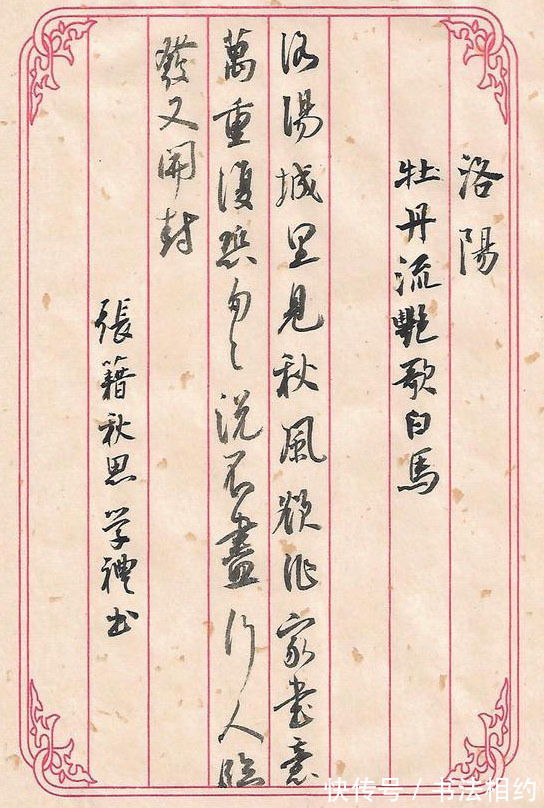 洛陽
牡丹流艷歌白馬
洛陽城里見秋風欲作家書意
萬重復恐匆々說不盡行人臨
發又開封
張籍秋思 学禮书
快传号 / 书法相约